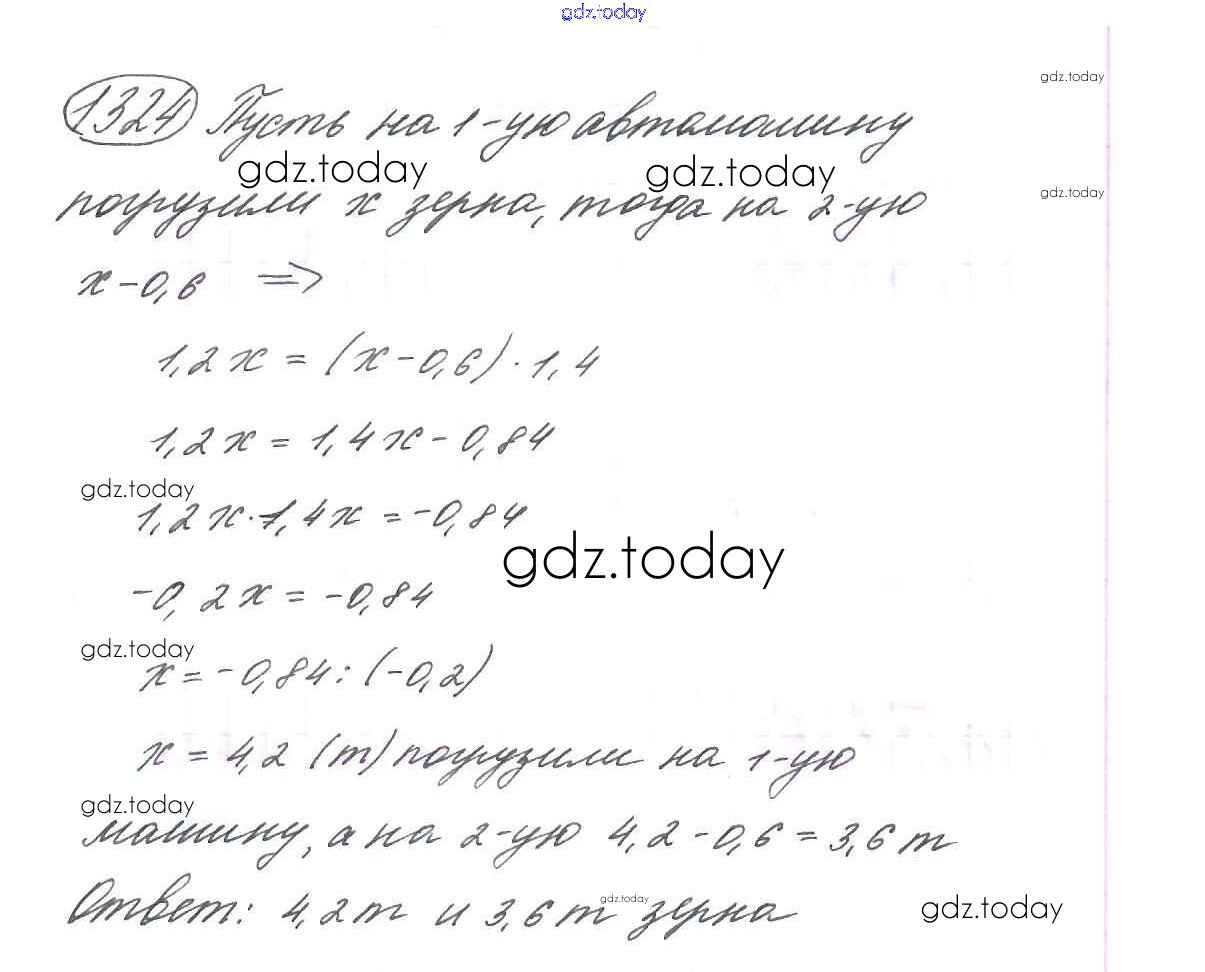 gdz.today
gdz.today
1324 Пусть на 1-ую автомашину
gdz.today gdz.today
погрузили x зерна, тогда на 2-ую
gdz.today
x-0,6 =>
1,2x = (x-0,6)·1,4
1,2x = 1,4x-0,84
gdz.today
1,2x-1,4x = -0,84
gdz.today
-0,2x = -0,84
gdz.today
x = -0,84:(-0,2)
x = 4,2 (т) погрузили на 1-ую
gdz.today
машину, а на 2-ую 4,2-0,6=3,6 т
gdz.today
Ответ: 4,2 т и 3,6 т зерна
gdz.today